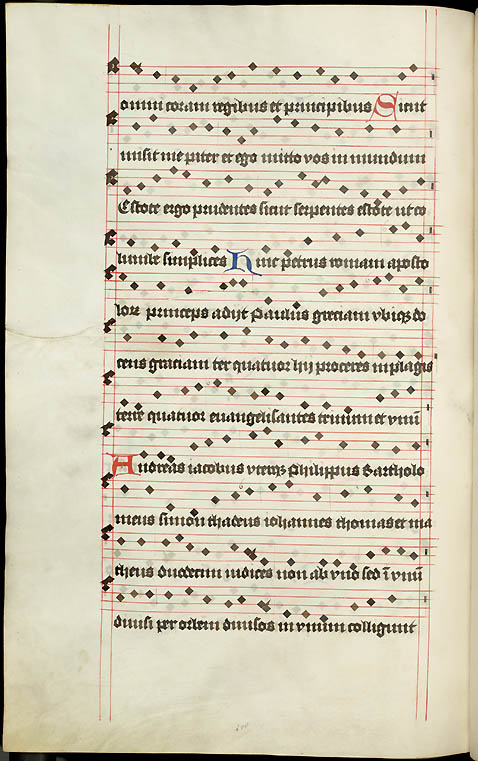 omni coram regibus et principibus Sicut
misit me pater et ego mitto vos in mundum
Estote ergo prudentes sicut serpentes estote ut co
lumbe simplices Hinc petrus romam aposto
lorum princeps adijt Paulus greciam vbique do
cens graciam ter quatuor hij proceres in plagis
terre quatuor euangelisantes trinum et vnum
Andreas iacobus vterque Philippus Bartholo
meus simon thadeus iohannes thomas et ma
theus duodecim iudices non ab vno sed in vnum
diuisi per orbem diuisos in vnum colligunt